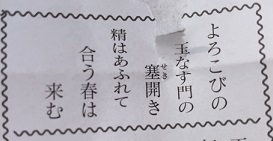 よろこびの
玉なす門の
塞開き
せき
精はあふれて
合う春は
来む